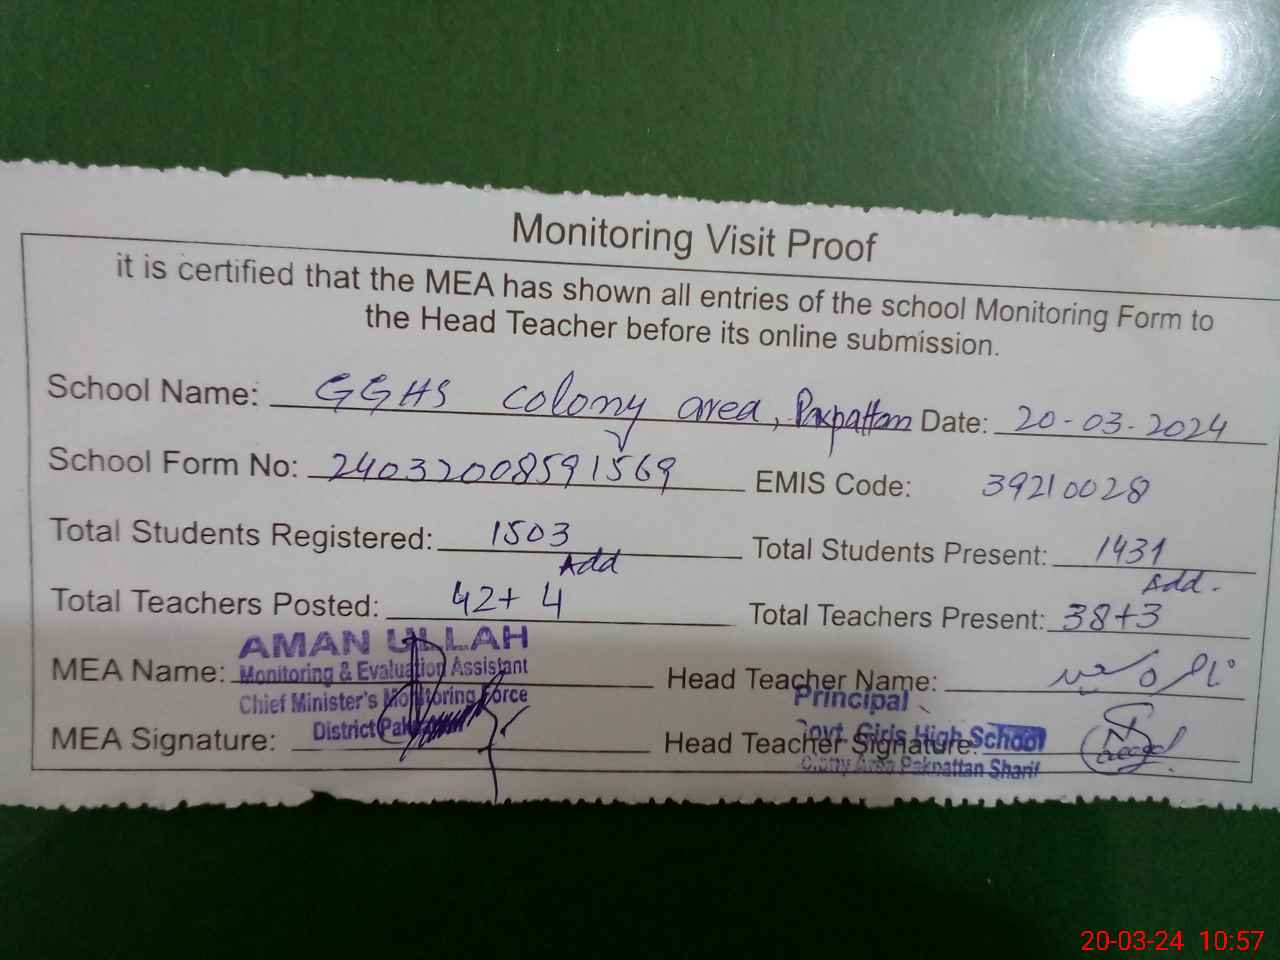 Monitoring Visit Proof
it is certified that the MEA has shown all entries of the school Monitoring Form to
the Head Teacher before its online submission.
School Name: GGHS colony area, Pakpattan Date: 20-03-2024
School Form No: 24032008591569 EMIS Code: 39210028
Total Students Registered: 1503 Total Students Present: 1431
Add Add.
Total Teachers Posted: 42+4 Total Teachers Present: 38+3
AMAN ULLAH
MEA Name: Monitoring & Evaluation Assistant Head Teacher Name:
Chief Minister's Monitoring Force Principal
District
MEA Signature: Head Teacher Signature:
Govt. Girls High School
Colony Area Pakpattan Sharif
20-03-24 10:57